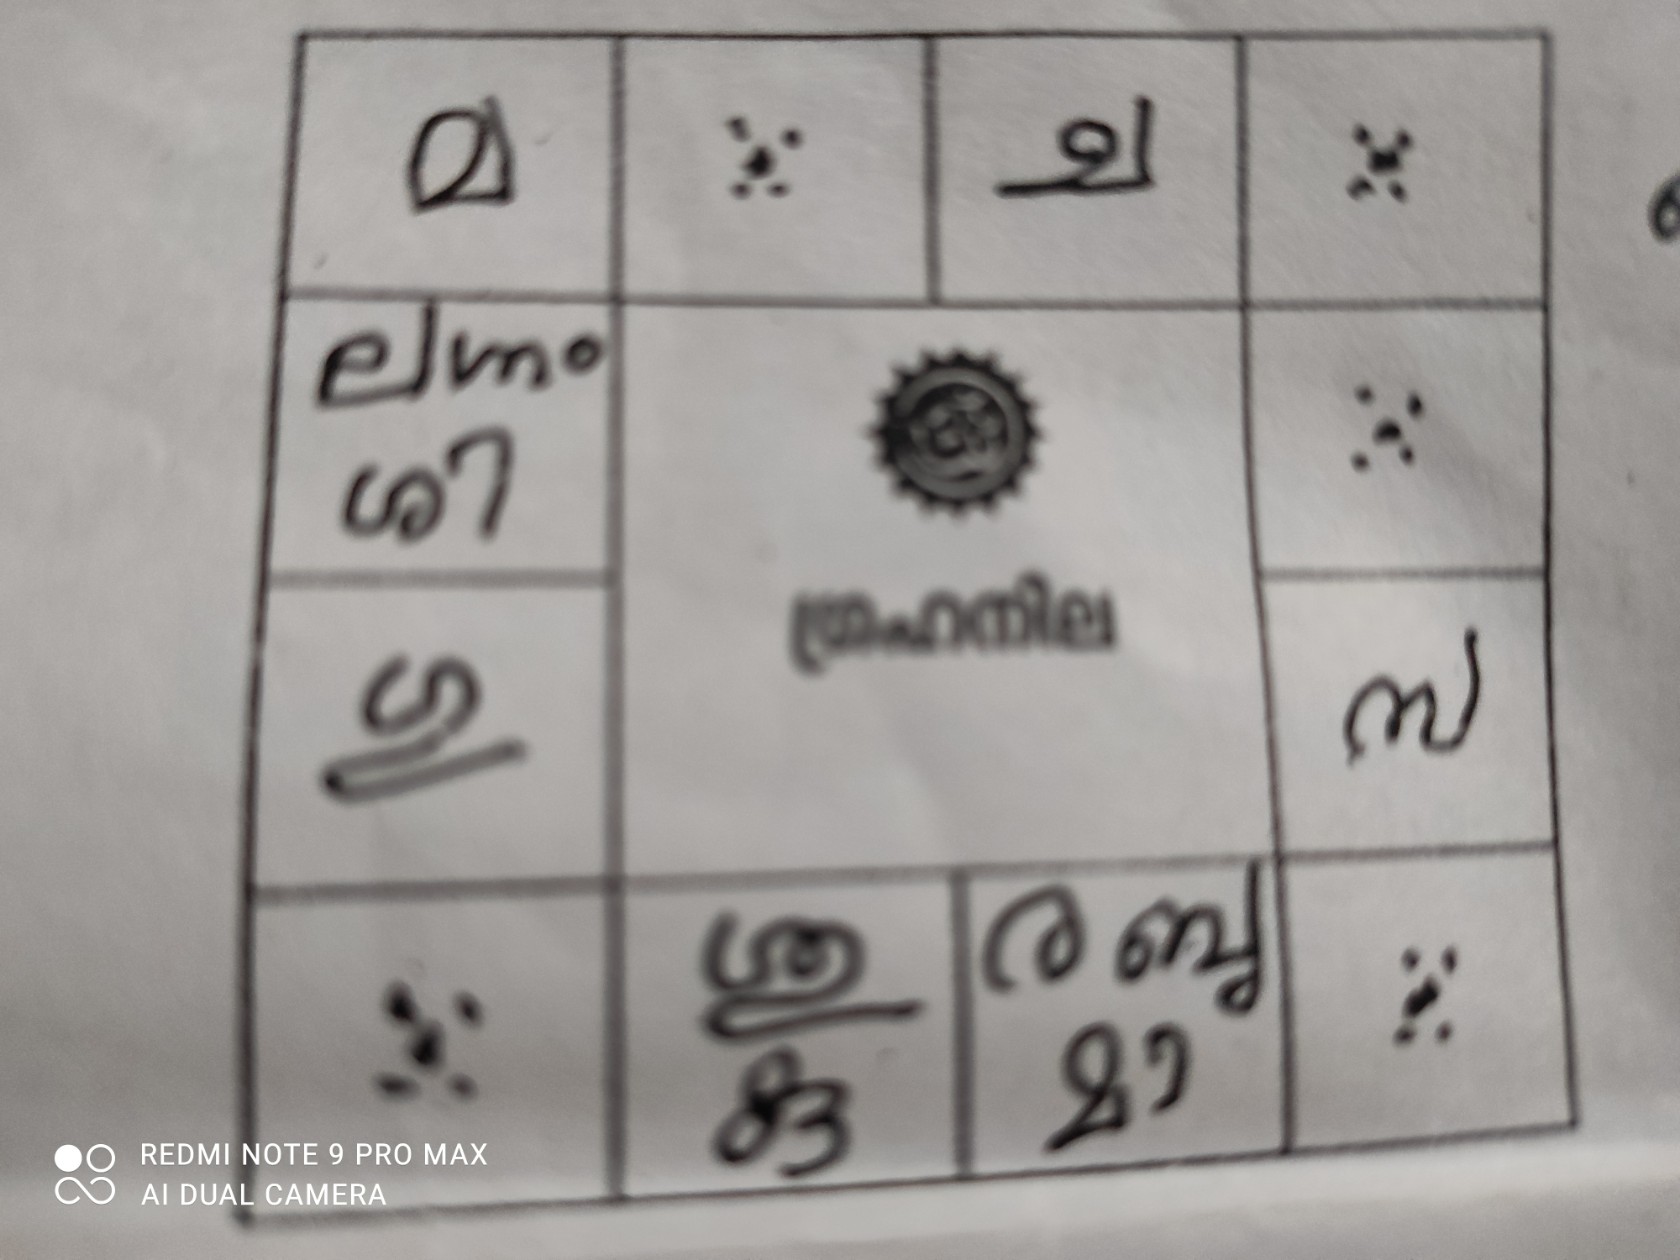 മ
ച
ലഗ്നം
ശി
ഗ്രഹനില
സ
ശു
ര ബു
മാ
REDMI NOTE 9 PRO MAX
AI DUAL CAMERA